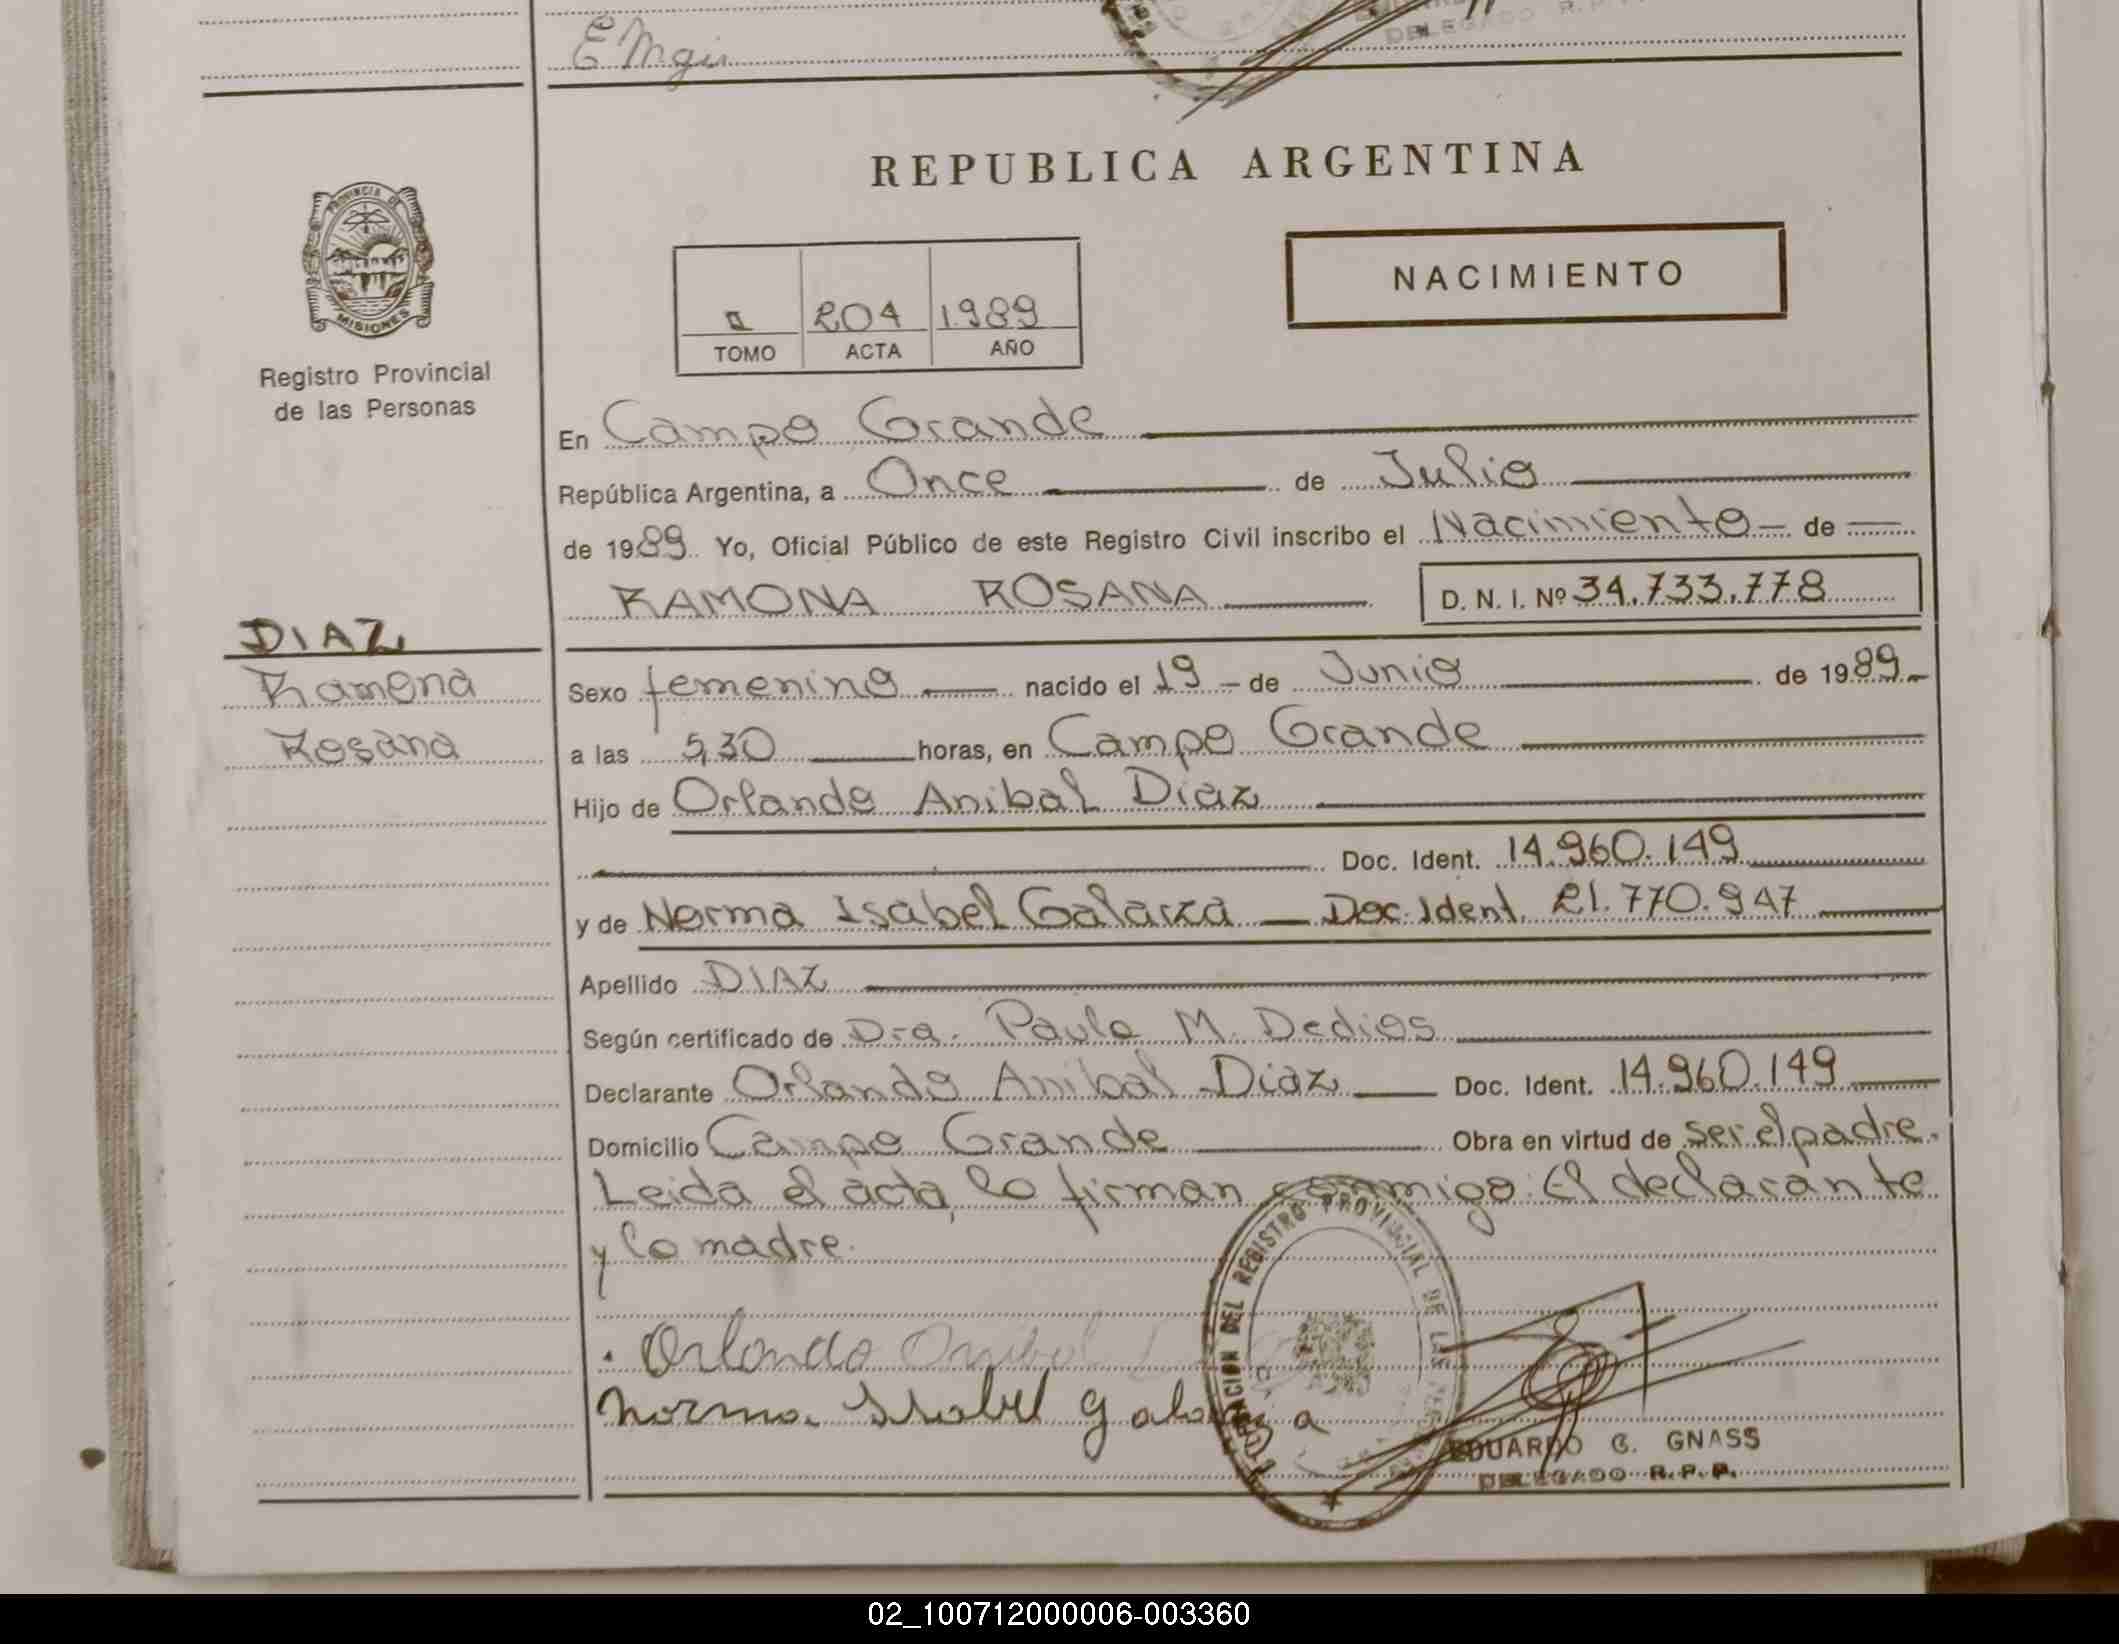 DELEGADO R.P.
REPUBLICA ARGENTINA
PROVINCIA DE
MISIONES
Registro Provincial
de las Personas
204 1989
TOMO ACTA AÑO
NACIMIENTO
En Campo Grande
República Argentina, a Once de Julio
de 1989 Yo, Oficial Público de este Registro Civil inscribo el Nacimiento de
RAMONA ROSANA D. N. I. Nº 34.733.778
DIAZ
Ramona
Rosana
Sexo femenino nacido el 19 de Junio de 1989
a las 5,30 horas, en Campo Grande
Hijo de Orlando Anibal Diaz
Doc. Ident. 14.960.149
y de Norma Isabel Galarza Doc. Ident. 21.770.947
Apellido DIAZ
Según certificado de Dra. Paula M. Dedios
Declarante Orlando Anibal Diaz Doc. Ident. 14.960.149
Domicilio Campo Grande Obra en virtud de ser el padre.
Leida el acta, la firman conmigo: El declarante
y la madre.
DEL REGISTRO PROVINCIAL DE LAS
Orlando Anibal
Norma Isabel Galarza
EDUARDO G. GNASS
DELEGADO R.P.P.
02_100712000006-003360